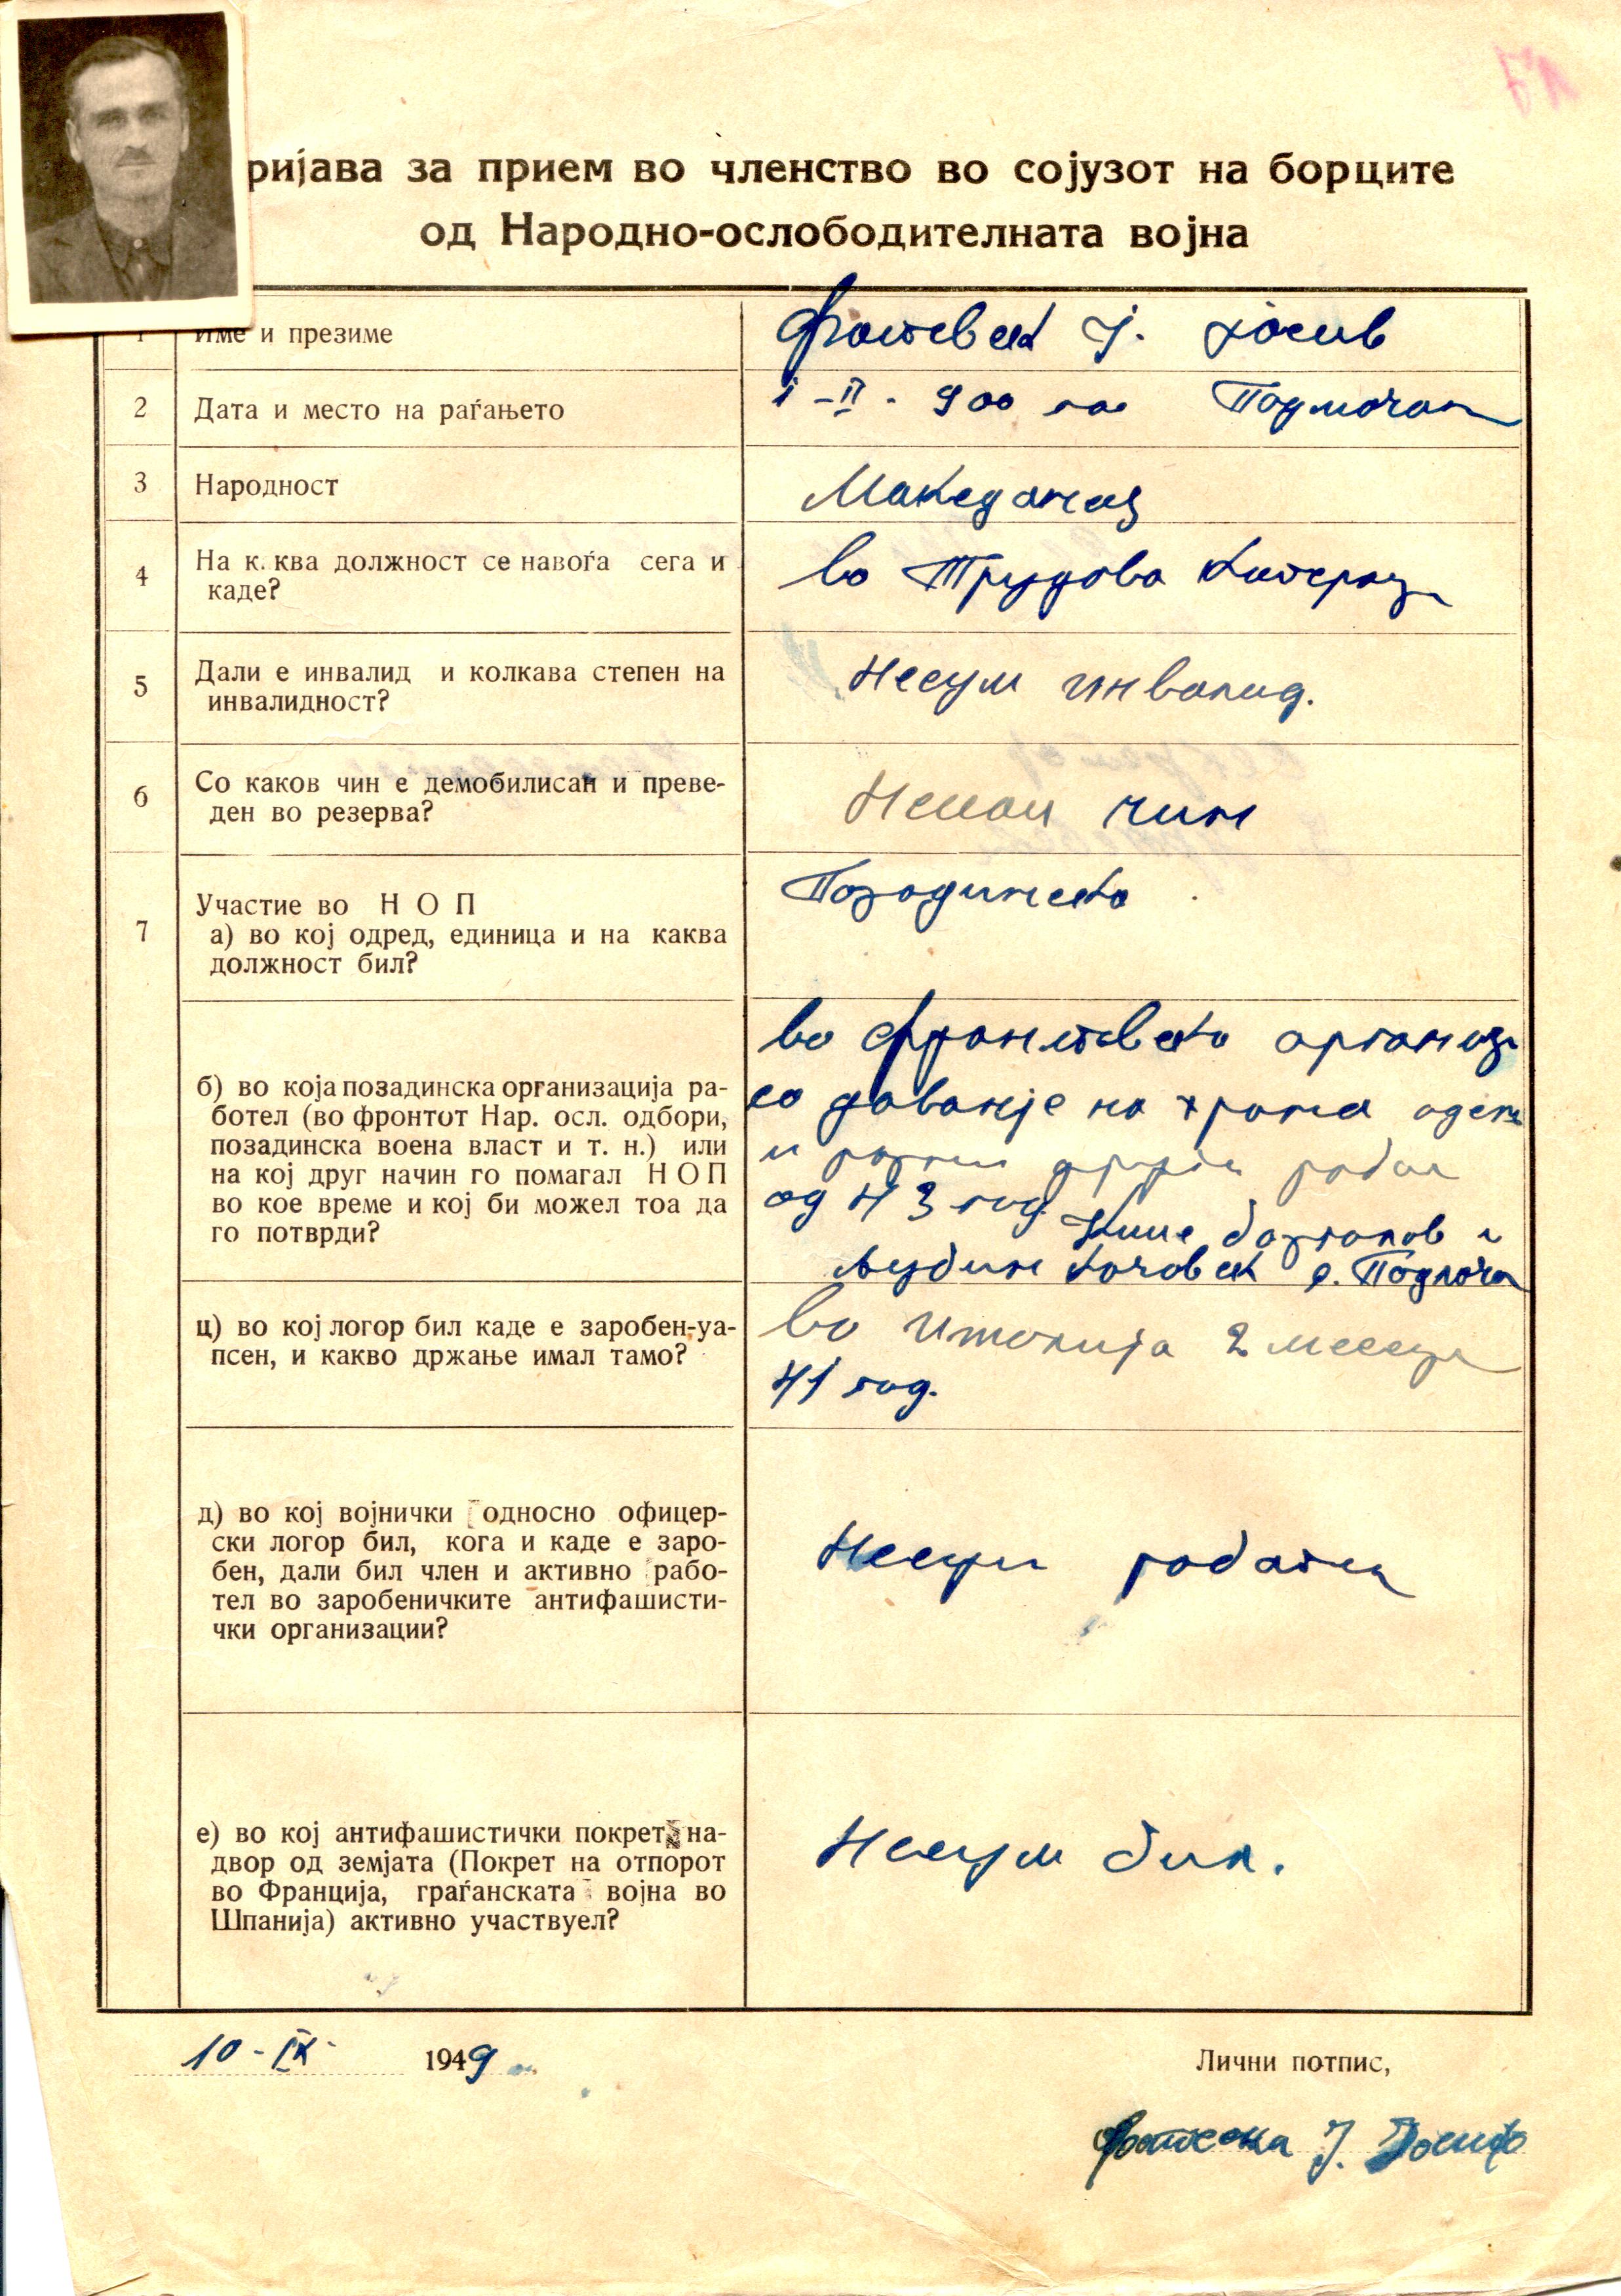 ријава за прием во членство во сојузот на борците
од Народно-ослободителната војна
1 Име и презиме
Ј. Јосив
2 Дата и место на раѓањето
1-II-900 год Подмочани
3 Народност
Македонец
4 На к. ква должност се навоѓа сега и
каде?
во Трудова
5 Дали е инвалид и колкава степен на
инвалидност?
Несум инвалид.
6 Со каков чин е демобилисан и преве-
ден во резерва?
Немам чин
7 Участие во Н О П
а) во кој одред, единица и на каква
должност бил?
Позадинско
б) во која позадинска организација ра-
ботел (во фронтот Нар. осл. одбори,
позадинска воена власт и т. н.) или
на кој друг начин го помагал Н О П
во кое време и кој би можел тоа да
го потврди?
во фронтовско
со давање на храна
и други
од 43 год
и
ц) во кој логор бил каде е заробен-уа-
псен, и какво држање имал тамо?
во Италија 2 месеци
41 год.
д) во кој војнички односно офицер-
ски логор бил, кога и каде е заро-
бен, дали бил член и активно рабо-
тел во заробеничките антифашисти-
чки организации?
Несум
е) во кој антифашистички покрет на-
двор од земјата (Покрет на отпорот
во Франција, граѓанската војна во
Шпанија) активно участвуел?
Несум бил.
10-IX- 1949
Лични потпис,
Ј. Јосиф